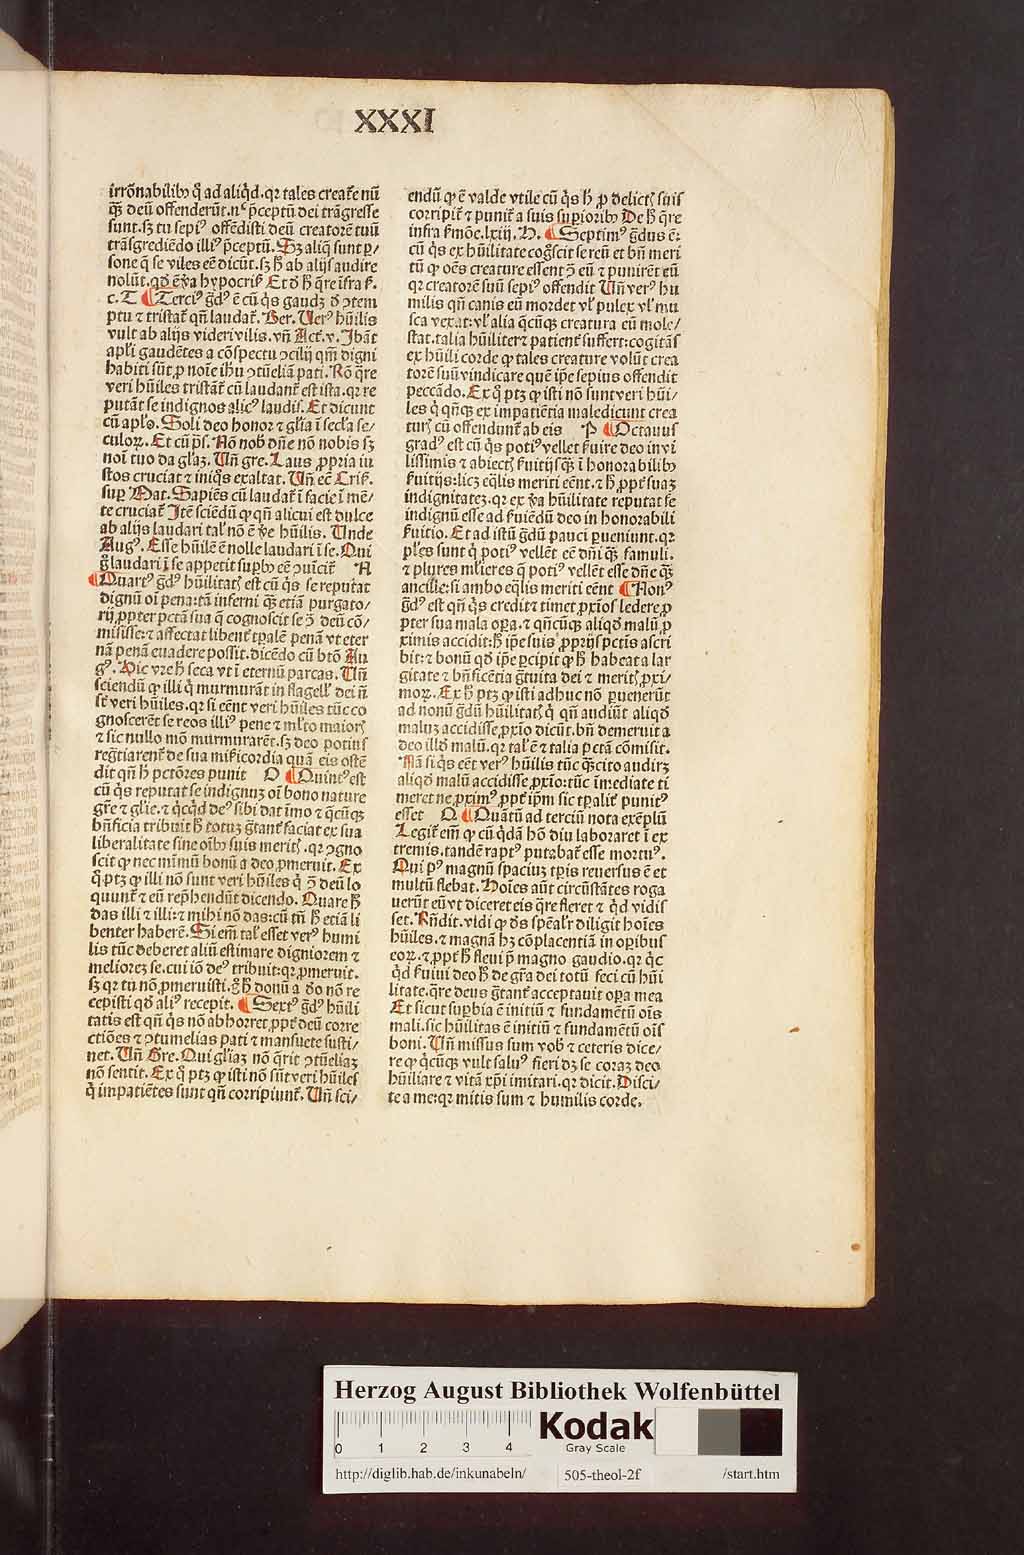 XXXI
irrōnabilibꝫ qͥ ad aliqd. qꝛ tales creatᷓe nū
qͣꝫ deū offenderūt. nͨ p̄ceptū dei trāgresse
sunt. sꝫ tu sepiꝰ offēdisti deū creatorē tuū
trāsgrediēdo illiꝰ p̄ceptū. Sꝫ aliq̄ sunt ꝑ⸗
sone q̄ se viles eē dicūt. sꝫ h̄ ab alijs audire
nolūt. qd̄ ē v̄a hypocriẜ Et d̄ h̄ q̄re īfra ẜ.
c. T ¶ Terciꝰ gͣdꝰ ē cū qͥs gaudꝫ d̄ ↄtem
ptu ⁊ tristat̉ qn̄ laudat̉. Ber. Uerꝰ hūilis
vult ab alijs videri vilis. vn̄ Act̉. v. Ibāt
apl̄i gaudētes a cōspectu ↄcilij qm̄ digni
habiti sūt, ꝓ noīe ihū ↄtūeliā pati. Rō q̄re
veri hūiles tristāt̉ cū laudant̉ est ista. qꝛ re
putāt se indignos alicꝰ laudis. Et dicunt
cū apl̄o. Soli deo honor ⁊ gl̄ia ī secl̄a se⸗
culoꝝ. Et cū p̄s. Nō nob̄ dn̄e nō nobis sꝫ
noī tuo da gl̄aꝫ. Un̄ gre. Laus ꝓpria iu
stos cruciat ⁊ iniqͦs exaltat. Un̄ eē Criẜ.
sup̄ Mat. Sapiēs cū laudat̉ ī facie ī mē⸗
te cruciat̉ Itē sciēdū ꝙ qn̄ alicui est dulce
ab alijs laudari tal̓ nō ē v̄e hūilis. Unde
Augꝰ. Esse hūilē ē nolle laudari ī se. Qui
gͦ laudari ī se appetit suꝑbꝰ eē ↄuīcit̉ A
¶ Quartꝰ gͣdꝰ hūilitatꝭ est cū qͥs se reputat
dignū oī pena: tā inferni qͣꝫ etiā purgato⸗
rij ꝓpter pctā sua q̄ cognoscit se ↄ̄ deū cō⸗
misisse: ⁊ affectat libent̉ tꝑalē penā vt eter
nā penā euadere possit. dicēdo cū btō Au
gꝰ. Hic vre h̄ seca vt ī eternū parcas. Un̄
sciendū ꝙ illi qͥ murmurāt in flagell̓ dei nō
sūt veri hūiles. qꝛ si eēnt veri hūiles tūc co
gnoscerēt se reos illiꝰ pene ⁊ ml̓to maioꝛꝭ
⁊ sic nullo mō murmurarēt. sꝫ deo potius
regr̄tiarent̉ de sua mīẜicordia quā eis ostē
dit qn̄ h̄ pctōres punit O ¶ Quintꝰ est
cū qͥs reputat se indignuꝫ oī bono nature
gr̄e ⁊ gl̄ie. ⁊ qͥcqͥd deꝰ sibi dat īmo ⁊ qͥcūqꝫ
bn̄ficia tribuit h̄ totuꝫ gͣtant̉ faciat ex sua
liberalitate sine oībꝫ suis meritꝭ. qꝛ ↄgno
scit ꝙ nec mīmū bonū a deo ꝓmeruit. Ex
qͦ ptꝫ ꝙ illi nō sunt veri hūiles qͥ ↄ̄ deū lo
quunt̉ ⁊ eū rep̄hendūt dicendo. Quare h̄
das illi ⁊ illi: ⁊ mihi nō das: cū tn̄ h̄ etiā li
benter haberē. Si em̄ tal̓ esset verꝰ humi
lis tūc deberet aliū estimare digniorem ⁊
melioreꝫ se. cui iō deꝰ tribuit: qꝛ ꝓmeruit.
Sꝫ qꝛ tu nō ꝓmeruisti. gͦ h̄ donū a do nō re
cepisti qd̄ aliꝰ recepit. ¶ Sextꝰ gͣdꝰ hūili
tatis est qn̄ qͥs nō abhorret ꝓpt̉ deū corre
ctiōes ⁊ ↄtumelias pati ⁊ mansuete susti⸗
net. Un̄ Gre. Qui gl̄iaꝫ nō q̄rit ↄtūeliaꝫ
nō sentit. Ex qͦ ptꝫ ꝙ isti nō sūt veri hūiles
qͥ impatiētes sunt qn̄ corripiunt̉. Un̄ sci⸗
endū ꝙ ē valde vtile cū qͥs h̄ ꝓ delictꝭ suis
corripit̉ ⁊ punit̉ a suis supioribꝫ De h̄ q̄re
infra ẜmōe. lxiij. H. ¶ Septimꝰ gͣdus ē:
cū qͥs ex hūilitate cogͦscit se reū et bn̄ meri
tū ꝙ oēs creature essent ↄ̄ eū ⁊ punirēt eū
qꝛ creatorē suū sepiꝰ offendit Un̄ verꝰ hu
milis qn̄ canis eū mordet vl̓ pulex vl̓ mu
sca vexat: vl̓ alia qͥcūqꝫ creatura eū mole⸗
stat. talia hūiliter ⁊ patient̉ suffert: cogitās
ex hūili corde ꝙ tales creature volūt crea
torē suū vindicare quē ip̄e sepius offendit
peccādo. Ex qͦ ptꝫ ꝙ isti nō sunt veri hūi⸗
les qͥ qn̄qꝫ ex impatiētia maledicunt crea
turꝭ cū offendunt̉ ab eis P ¶ Octauus
gradꝰ est cū qͥs potiꝰ vellet ẜuire deo in vi
lissimis ⁊ abiectꝭ ẜuitijs qͣꝫ ī honorabilibꝫ
ẜuitijs: licꝫ eq̄lis meriti eēnt. ⁊ h̄ ꝓpt̉ suaꝫ
indignitateꝫ. qꝛ ex v̄a hūilitate reputat se
indignū esse ad ẜuiēdū deo in honorabili
ẜuitio. Et ad istū gͣdū pauci ꝑueniunt. qꝛ
pl̄es sunt qͥ potiꝰ vellēt eē dn̄i qͣꝫ famuli.
⁊ plures mlieres q̄ potiꝰ vellēt esse dn̄e qͣꝫ
ancille: si ambo eq̄lis meriti eēnt ¶ Nonꝰ
gͣdꝰ est qn̄ qͥs credit ⁊ timet ꝓxīos ledere ꝓ
pter sua mala oꝑa. ⁊ qn̄cūqꝫ aliqd̄ malū ꝓ
ximis accidit: h̄ ip̄e suis ꝓprijs pctis ascri
bit: ⁊ bonū qd̄ ip̄e ꝑcipit ꝙ h̄ habeat a lar
gitate ⁊ bn̄ficētia gͣtuita dei ⁊ meritꝭ ꝓxi⸗
moꝝ. Ex h̄ ptꝫ ꝙ isti adhuc nō ꝑuenerūt
ad nonū gͣdū hūilitatꝭ qͥ qn̄ audiūt aliqd̄
maluꝫ accidisse ꝓxīo dicūt. bn̄ demeruit a
deo illd̄ malū. qꝛ tal̓ ē ⁊ talia pctā cōmisit.
Nā si qͥs eēt verꝰ hūilis tūc qͣꝫcito audirꝫ
aliqd̄ malū accidisse ꝓxīo: tūc īmediate ti
meret ne ꝓximꝰ ꝓpt̉ ip̄m sic tꝑalit̉ punitꝰ
esset Q ¶ Quātū ad terciū nota exēplū
Legit̉ em̄ ꝙ cū qͥdā hō diu laboraret ī ex
tremis. tandē raptꝰ putabat̉ esse mortuꝰ.
Qui pꝰ magnū spaciuꝫ tꝑis reuersus ē et
multū flebat. Hoīes aūt circūstātes roga
uerūt eū vt diceret eis q̄re fleret ⁊ qͥd vidis
set. Rn̄dit. vidi ꝙ d̄s spēal̓r diligit hoīes
hūiles. ⁊ magnā hꝫ cōplacentiā in oꝑibus
eoꝝ. ⁊ ꝓpt̉ h̄ fleui p̄ magno gaudio. qꝛ qͥc
qͥd ẜuiui deo h̄ de gr̄a dei totū feci cū hūi
litate. q̄re deus gͣtant̉ acceptauit oꝑa mea
Et sicut suꝑbia ē initiū ⁊ fundamētū oīs
mali. sic hūilitas ē initiū ⁊ fundamētū oīs
boni. Un̄ missus sum vob̄ ⁊ ceteris dice⸗
re ꝙ qͥcūqꝫ vult saluꝰ fieri dꝫ se coraꝫ deo
hūiliare ⁊ vitā xp̄i imitari. qꝛ dicit. Disci⸗
te a me: qꝛ mitis sum ⁊ humilis corde.
Herzog August Bibliothek Wolfenbüttel
0 1 2 3 4 Kodak
Gray Scale
http://diglib.hab.de/inkunabeln/ 505-theol-2f /start.htm